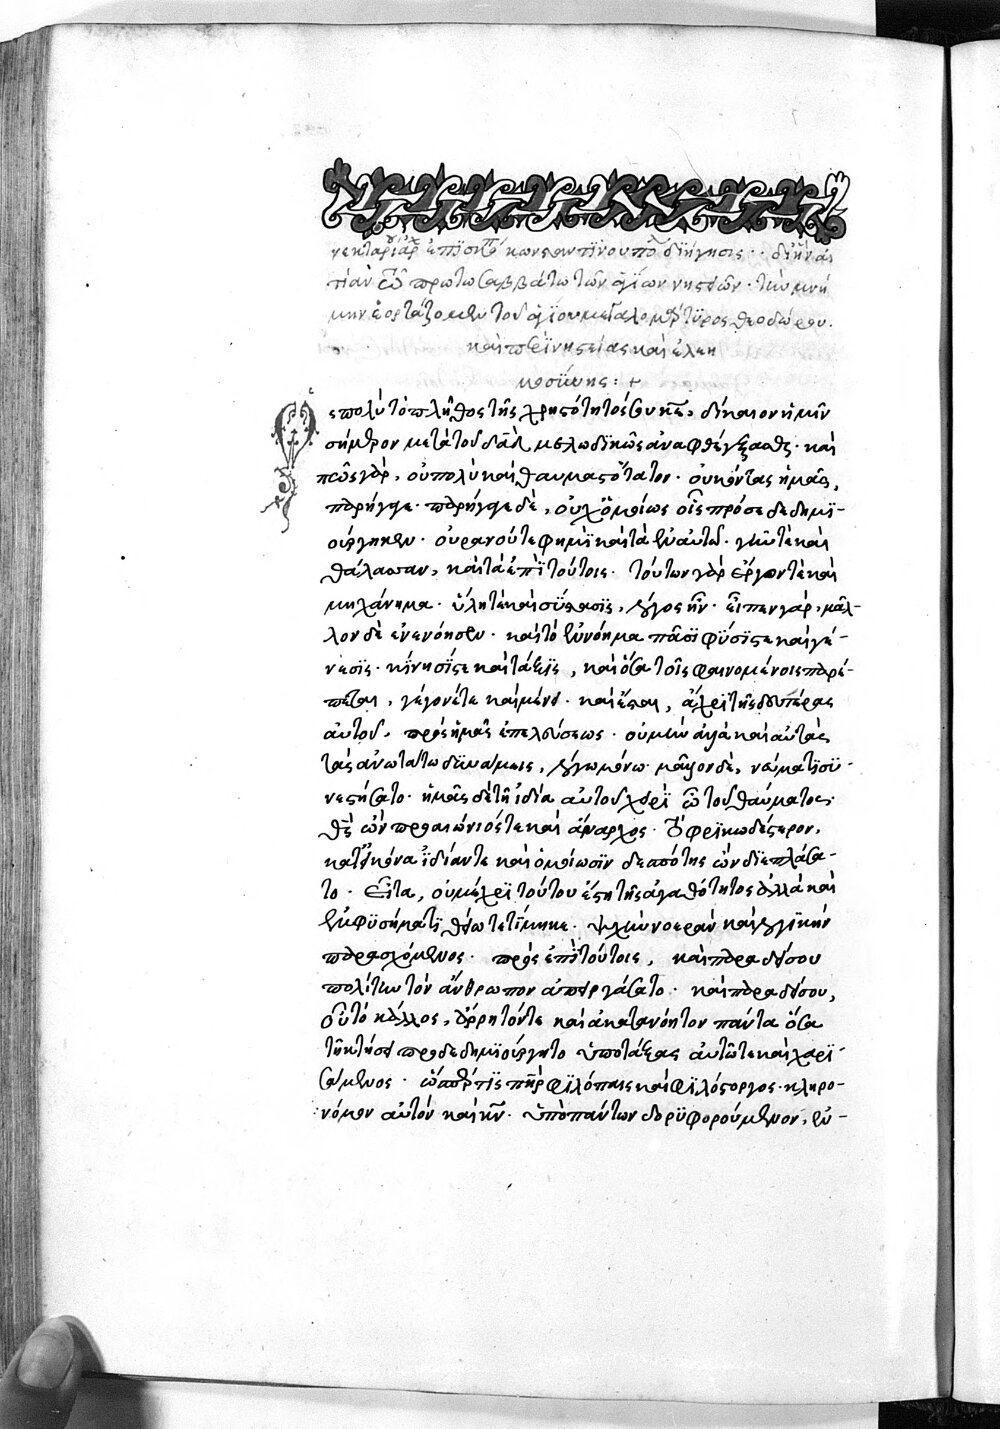 νεκταρίου ἀρχιεπισκόπου κωνσταντινουπόλεως διήγησις · δι' ἣν αἰ
τίαν τῶ πρώτω σαββάτω τῶν ἁγίων νηστειῶν · τὴν μνή
μην ἑορτάζομεν τοῦ ἁγίου μεγαλομάρτυρος θεοδώρου.
καὶ περὶ νηστείας καὶ ἐλεη
μοσύνης : +
Ὡς πολὺ τὸ πλῆθος τῆς χρηστότητός σου κύριε, δίκαιον ἡμῖν
σήμερον μετὰ τοῦ δαυὶδ μελωδικῶς ἀναφθέγξασθαι · καὶ
πῶς γὰρ, οὐ πολὺ καὶ θαυμαστότατον · οὐκ ὄντας ἡμᾶς,
παρήγαγε · παρήγαγε δὲ, οὐχ ὁμοίως οἷς πρὸς δεδημι-
ούργηκεν · οὐρανούς τε φημὶ καὶ τὰ ἐν αὐτῶ · γῆν τε καὶ
θάλασσαν, καὶ τὰ ἐπὶ τούτοις · τούτων γὰρ ἔργόν τε καὶ
μηχάνημα · ὕλη τε καὶ σύστασις, λόγος ἦν · εἶπεν γὰρ, μᾶλ-
λον δὲ ἐνενόησεν · καὶ τὸ ἐννόημα πᾶσι φύσίς τε καὶ γέ-
νεσις · κίνησίς τε καὶ τάξις, καὶ ὅσα τοῖς φαινομένοις παρέ-
πεται, γέγονέ τε καὶ μένει · καὶ ἔσται, ἄχρι τῆς δευτέρας
αὐτοῦ, πρὸς ἡμᾶς ἐπελεύσεως · οὐ μὴν ἀλλὰ καὶ αὐτὰς
τὰς ἀνωτάτω δυνάμεις, λόγω μόνω · μᾶλλον δὲ, νεύματι συ-
νεστήσατο · ἡμᾶς δὲ τῆ ἰδία αὐτοῦ χειρὶ ὢ τοῦ θαύματος
θεὸς ὢν προαιώνιός τε καὶ ἄναρχος · τὸ φρικωδέστερον,
κατ' εἰκόνα ἰδίαν τε καὶ ὁμοίωσιν δεσπότης ὢν διεπλάσα-
το · Εἶτα, οὐ μέχρι τούτου ἔστη τῆς ἀγαθότητος ἀλλὰ καὶ
ἐμφυσήματι θείω τετίμηκε · ψυχὴν νοερὰν καὶ λογικὴν
παρασχόμενος · πρὸς ἐπὶ τούτοις, καὶ παραδείσου
πολίτην τὸν ἄνθρωπον ἀπειργάσατο · καὶ παραδείσου,
οὗ τὸ κάλλος, ἄρρητόν τε καὶ ἀκατανόητον πάντα ὅσα
τῆ κτίσει προδεδημιούργητο ὑποτάξας αὐτῶ τε καὶ χαρι-
σάμενος · ὥσπέρ τις πατὴρ φιλόπαις καὶ φιλόστοργος · κληρο-
νόμον αὐτὸν καὶ κύριον · ὑπὸ πάντων δορυφορούμενον, ἐν-